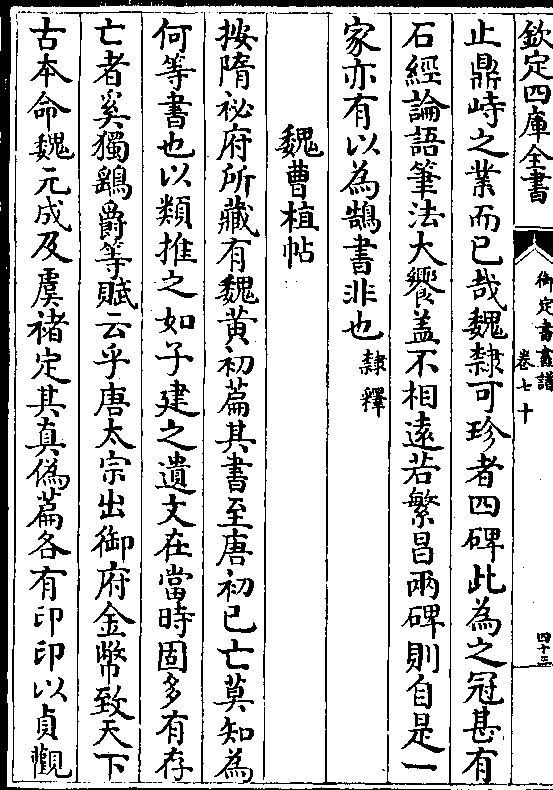 欽定四庫全書
御定書畫譜
卷七十
四十三
止鼎峙之業而已哉魏隸可珍者四碑此為之冠甚有
石經論語筆法大饗蓋不相遠若繁昌兩碑則自是一
家亦有以為鵠書非也隸釋
魏曹植帖
按隋祕府所藏有魏黃初篇其書至唐初已亡莫知為
何等書也以類推之如子建之遺文在當時固多有存
亡者奚獨鷂爵等賦云乎唐太宗出御府金幣致天下
古本命魏元成及虞褚定其真偽篇各有印印以貞觀